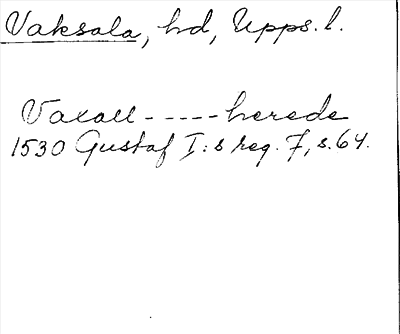 Vaksala, hd, Upps. l.
Vaxall-----herede
1530 Gustaf I:s reg. 7, s. 64.